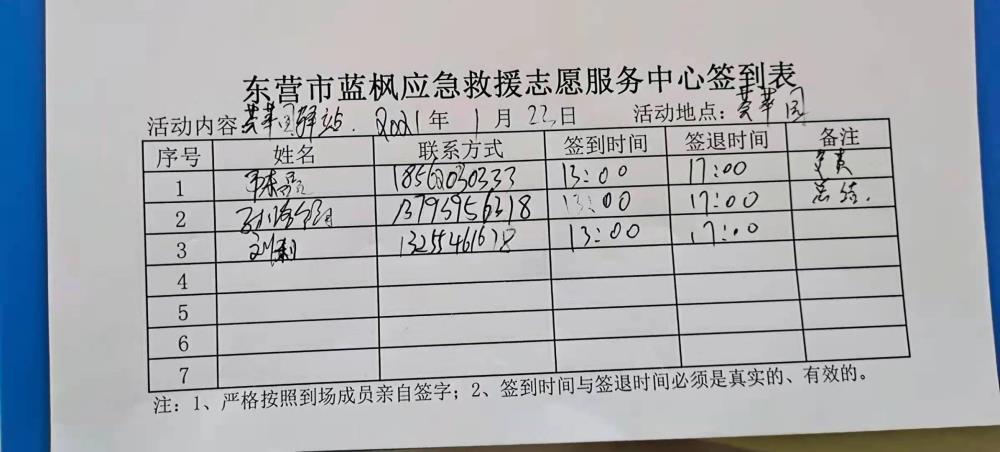 东营市蓝枫应急救援志愿服务中心签到表
活动内容 荟萃园驿站. 2021年 1月 22日 活动地点：荟萃园
序号 姓名 联系方式 签到时间 签退时间 备注
1 18562030333 13:00 17:00
2 13795956318 13:00 17:00 总结.
3 刘利 13255461678 13:00 17:00
4
5
6
7
注：1、严格按照到场成员亲自签字；2、签到时间与签退时间必须是真实的、有效的。